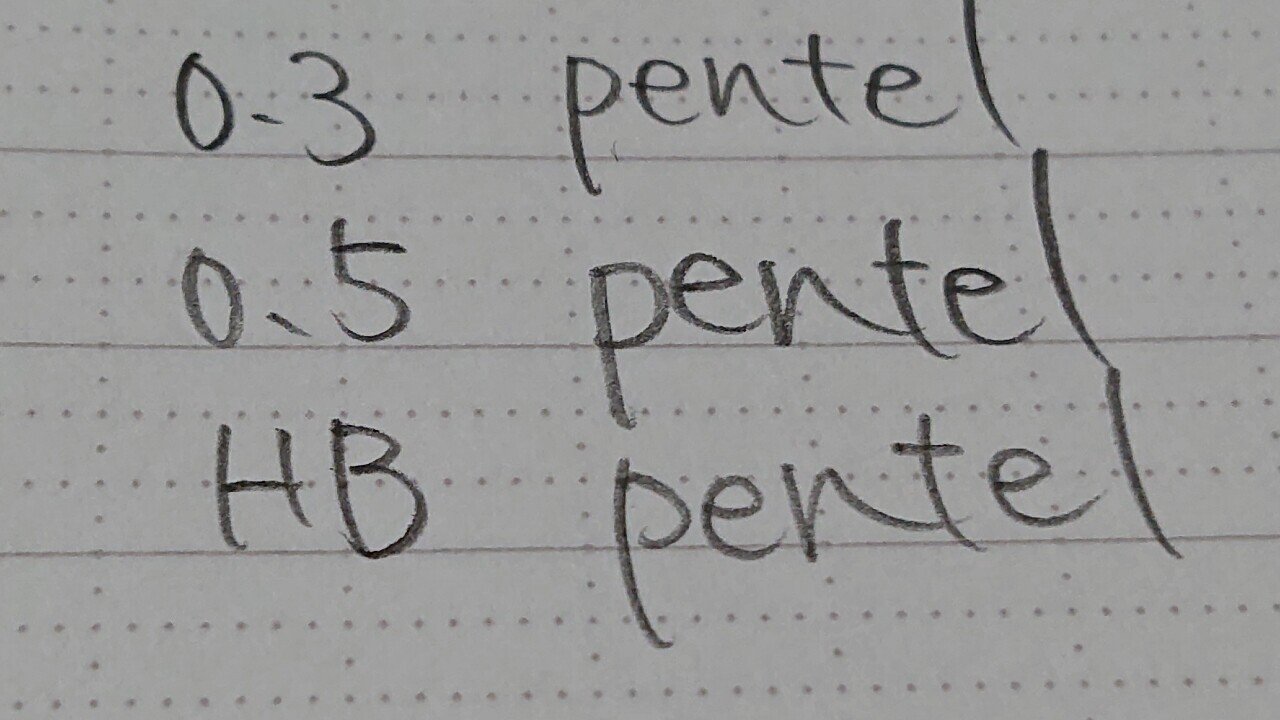 0.3 pentel
0.5 pentel
HB pentel